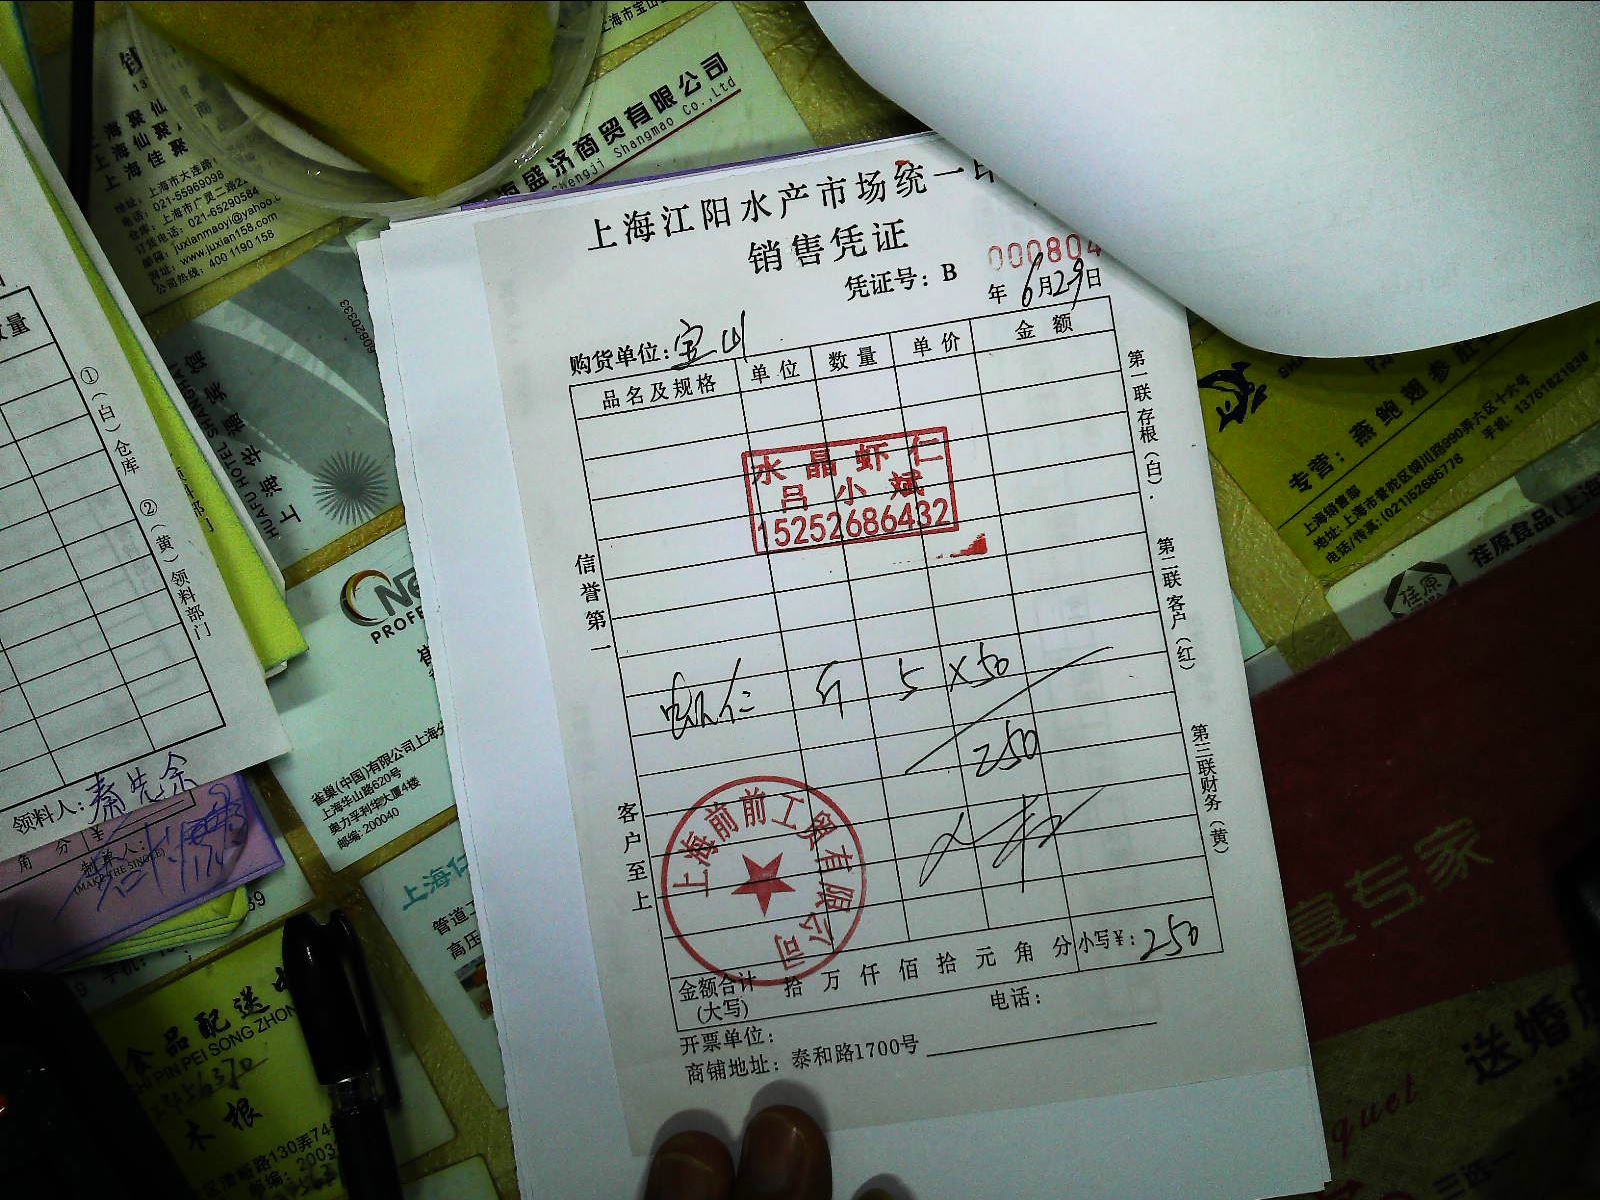 上海市宝山
盛济商贸有限公司
Shengji Shangmao Co.,Ltd
上海聚仙
上海仙聚
上海佳聚
商
地址: 上海市大连路
电话: 021-55969098
仓库: 上海市广灵二路2
订货电话: 021-65290584
邮箱: juxianmaoyi@yahoo.c
网址: www.juxian158.com
公司热线: 400 1190 158
上海江阳水产市场统一印
销售凭证
凭证号: B 000804
年 6月29日
购货单位: 宝山
品名及规格 单位 数量 单价 金额
水晶虾仁
吕小斌
15252686432
信誉第一
客户至上
虾仁 斤 5 ×50
250
上海前前工贸有限公司
金额合计 拾 万 仟 佰 拾 元 角 分 小写¥: 250
(大写)
开票单位: 电话:
商铺地址: 泰和路1700号
第一联存根(白).
第二联客户(红)
第三联财务(黄)
数量
①(白)仓库
②(黄)领料部门
领料部门
领料人: 秦先余
¥
角 分 制单人:
(MAKE THE SINGLE)
60620333
HUAFU HOTEL SHANGHAI
上海华
PROFE
雀巢(中国)有限公司上海分
上海华山路620号
奥力孚利华大厦4楼
邮编: 200040
上海仁
管道工
高压
食品配送中
SHI PIN PEI SONG ZHON
木根
路130弄74
邮编: 2003
专营: 燕鲍翅参肚
上海销售部
地址: 上海市普陀区铜川路990弄六区十六号
电话/传真: (021)52685778
手机: 13761821838
荏原食品(上海
荏原
宴专家
送婚庆
quet
三选一